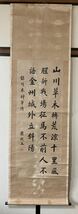 山川草木轉荒涼十里風
腥新戰場征馬不前人不
語金州城外立斜陽